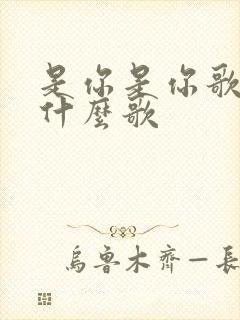 是你是你歌
什麼歌
烏魯木齊一長